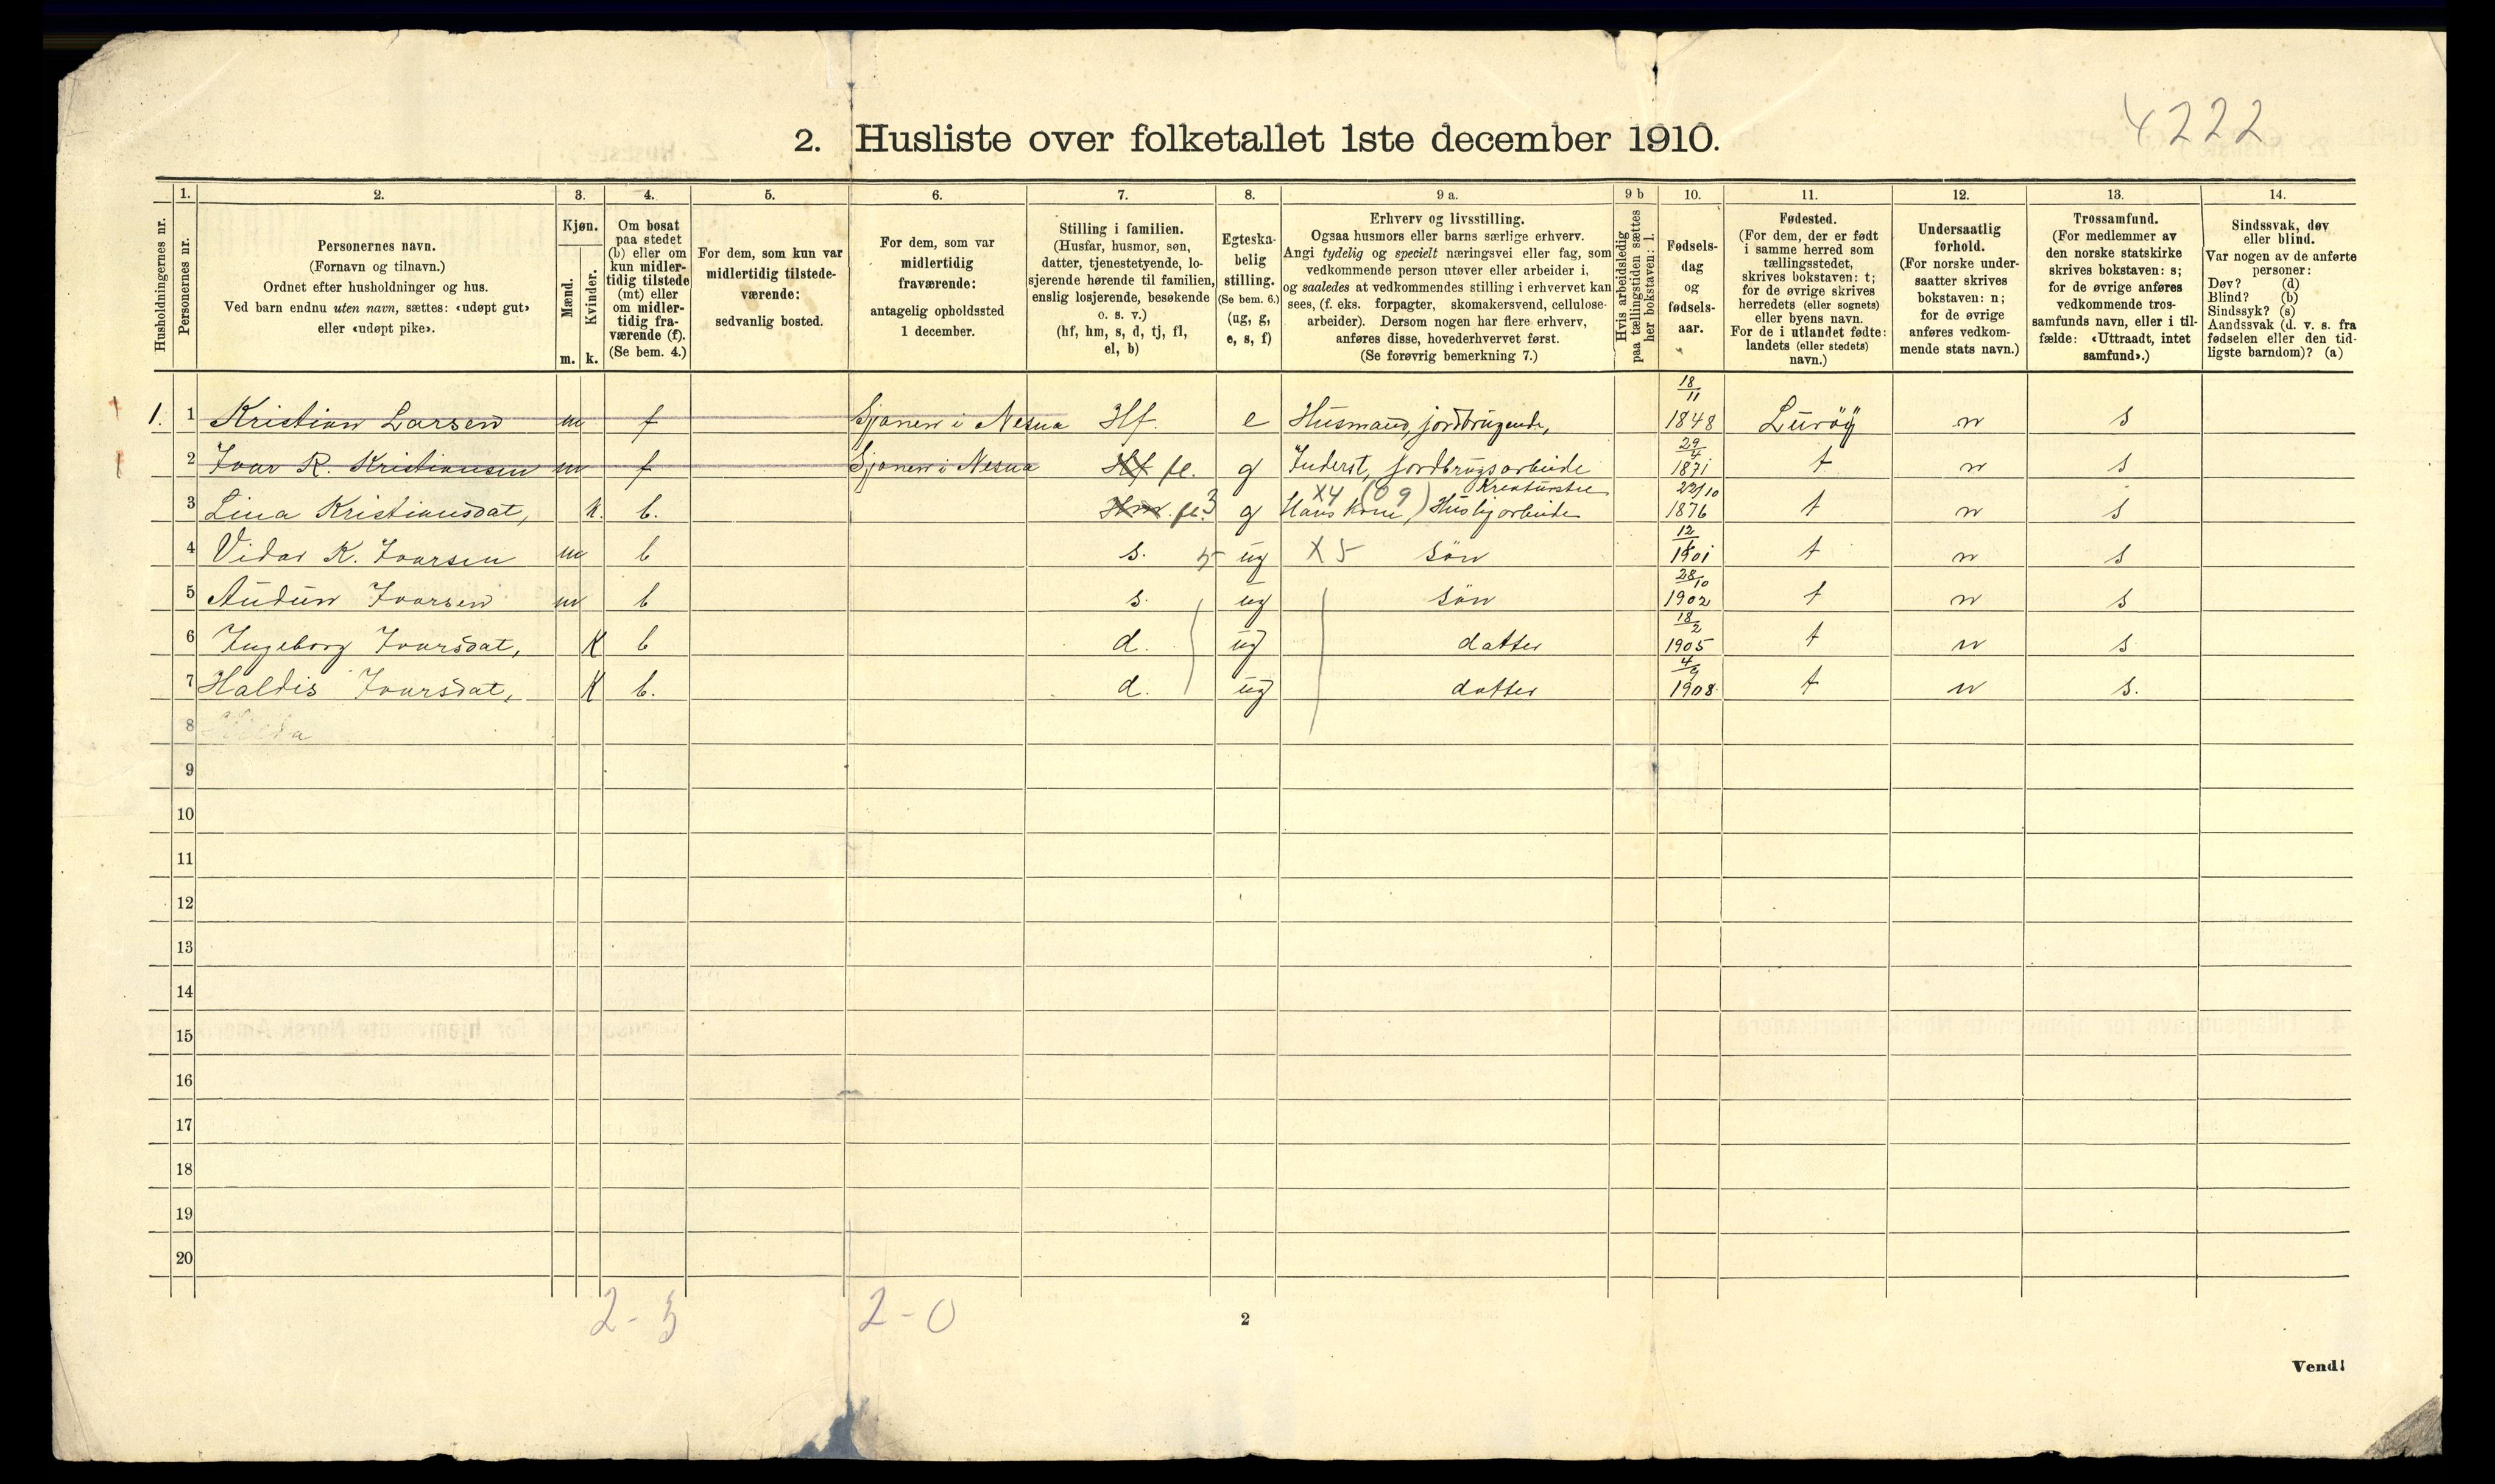 4222
2. Husliste over folketallet 1ste december 1910.
Husholdningernes nr.
1.
Personernes nr.
2.
Personernes navn.
(Fornavn og tilnavn.)
Ordnet efter husholdninger og hus.
Ved barn endnu uten navn, sættes: «udøpt gut»
eller «udøpt pike».
3.
Kjøn.
Mænd.
Kvinder.
m. k.
4.
Om bosat
paa stedet
(b) eller om
kun midler-
tidig tilstede
(mt) eller
om midler-
tidig fra-
værende (f).
(Se bem. 4.)
5.
For dem, som kun var
midlertidig tilstede-
værende:
sedvanlig bosted.
6.
For dem, som var
midlertidig
fraværende:
antagelig opholdssted
1 december.
7.
Stilling i familien.
(Husfar, husmor, søn,
datter, tjenestetyende, lo-
sjerende hørende til familien,
enslig losjerende, besøkende
o. s. v.)
(hf, hm, s, d, tj, fl,
el, b)
8.
Egteska-
belig
stilling.
(Se bem. 6.)
(ug, g,
e, s, f)
9 a.
Erhverv og livsstilling.
Ogsaa husmors eller barns særlige erhverv.
Angi tydelig og specielt næringsvei eller fag, som
vedkommende person utøver eller arbeider i,
og saaledes at vedkommendes stilling i erhvervet kan
sees, (f. eks. forpagter, skomakersvend, cellulose-
arbeider). Dersom nogen har flere erhverv,
anføres disse, hovederhvervet først.
(Se forøvrig bemerkning 7.)
9 b
Hvis arbeidsledig
paa tællingstiden sættes
her bokstaven: l.
10.
Fødsels-
dag
og
fødsels-
aar.
11.
Fødested.
(For dem, der er født
i samme herred som
tællingsstedet,
skrives bokstaven: t;
for de øvrige skrives
herredets (eller sognets)
eller byens navn.
For de i utlandet fødte:
landets (eller stedets)
navn.)
12.
Undersaatlig
forhold.
(For norske under-
saatter skrives
bokstaven: n;
for de øvrige
anføres vedkom-
mende stats navn.)
13.
Trossamfund.
(For medlemmer av
den norske statskirke
skrives bokstaven: s;
for de øvrige anføres
vedkommende tros-
samfunds navn, eller i til-
fælde: «Uttraadt, intet
samfund».)
14.
Sindssvak, døv
eller blind.
Var nogen av de anførte
personer:
Døv? (d)
Blind? (b)
Sindssyk? (s)
Aandssvak (d. v. s. fra
fødselen eller den tid-
ligste barndom)? (a)
1. 1 Kristian Larsen m f Sjonen i Nesna Hf. e Husmand, jordbrugende, 18/11 1848 Lurøy n s
2 Ivar R. Kristiansen m f Sjonen i Nesna Hf fl. g Inderst, jordbrugsarbeide 29/4 1871 t n s
3 Lina Kristiansdat, k. b. Hm. fl. 3 g Hans kone, X4 (09) Husligarbeide Kreaturstel 22/10 1876 t n s
4 Vidar K. Ivarsen m b s. 5 ug X5 søn 12/ 1901 t n s
5 Audun Ivarsen m b s. ug søn 28/10 1902 t n s
6 Ingeborg Ivarsdat, K b d. ug datter 18/2 1905 t n s
7 Haldis Ivarsdat, K b. d. ug datter 4/9 1908 t n s.
8
9
10
11
12
13
14
15
16
17
18
19
20
2 - 3 2 - 0
2
Vend!